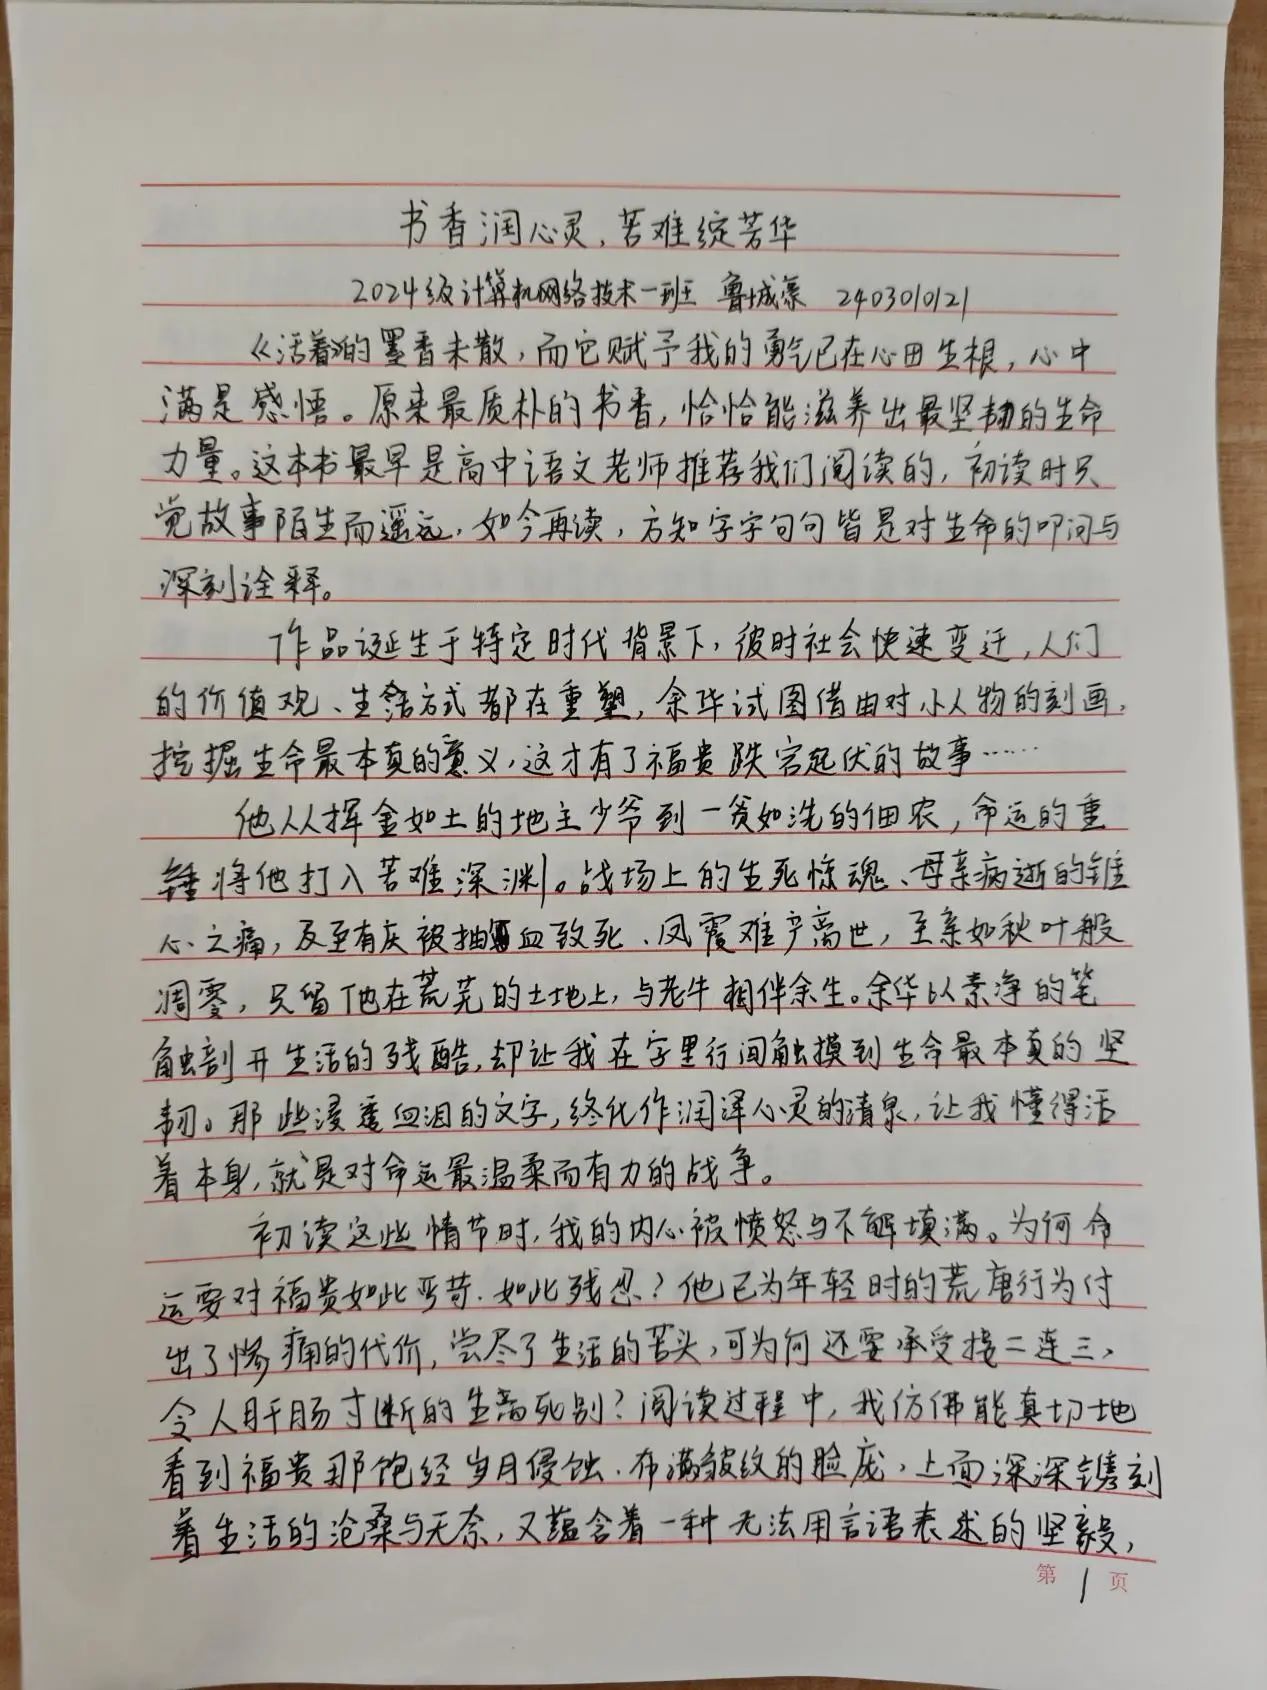 书香润心灵，苦难绽芳华
2024级计算机网络技术一班 鲁城 2403010121
《活着》的墨香未散，而它赋予我的勇气已在心田生根，心中
满是感悟。原来最质朴的书香，恰恰能滋养出最坚韧的生命
力量。这本书最早是高中语文老师推荐我们阅读的，初读时只
觉故事陌生而遥远，如今再读，方知字字句句皆是对生命的叩问与
深刻诠释。
作品诞生于特定时代背景下，彼时社会快速变迁，人们
的价值观、生活方式都在重塑，余华试图借由对小人物的刻画，
挖掘生命最本真的意义，这才有了福贵跌宕起伏的故事……
他从挥金如土的地主少爷到一贫如洗的佃农，命运的重
锤将他打入苦难深渊。战场上的生死惊魂、母亲病逝的锥
心之痛，及至有庆被抽血致死、凤霞难产离世，至亲如秋叶般
凋零，只留他在荒芜的土地上，与老牛相伴余生。余华以素净的笔
触剖开生活的残酷，却让我在字里行间触摸到生命最本真的坚
韧。那些浸透血泪的文字，终化作润泽心灵的清泉，让我懂得活
着本身，就是对命运最温柔而有力的战争。
初读这些情节时，我的内心被愤怒与不解填满。为何命
运要对福贵如此严苛、如此残忍？他已为年轻时的荒唐行为付
出了惨痛的代价，尝尽了生活的苦头，可为何还要承受接二连三、
令人肝肠寸断的生离死别？阅读过程中，我仿佛能真切地
看到福贵那饱经岁月侵蚀、布满皱纹的脸庞，上面深深镌刻
着生活的沧桑与无奈，又蕴含着一种无法用言语表述的坚毅，
第1页